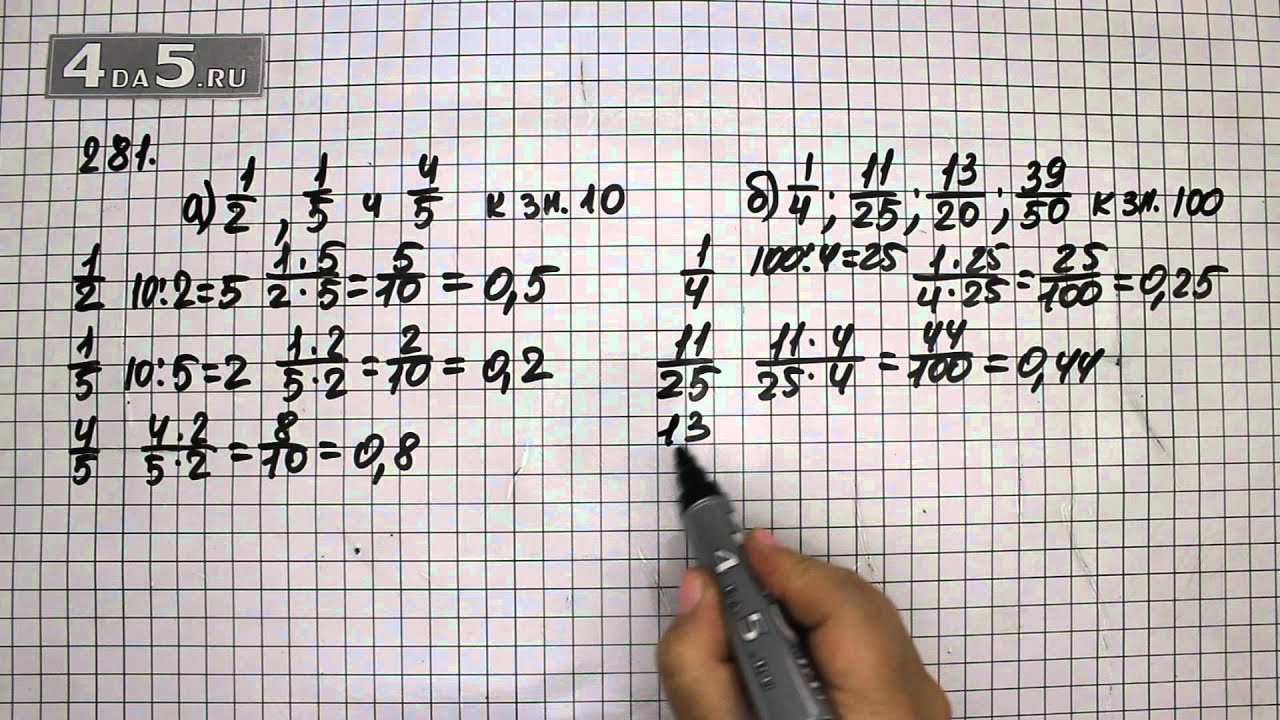 4DA5.RU
281.
а) 1/2, 1/5 и 4/5 к зн. 10
1/2 10:2=5 1·5/2·5=5/10=0,5
1/5 10:5=2 1·2/5·2=2/10=0,2
4/5 4·2/5·2=8/10=0,8
б) 1/4; 11/25; 13/20; 39/50 к зн. 100
1/4 100:4=25 1·25/4·25=25/100=0,25
11/25 11·4/25·4=44/100=0,44
13
4DA5.RU